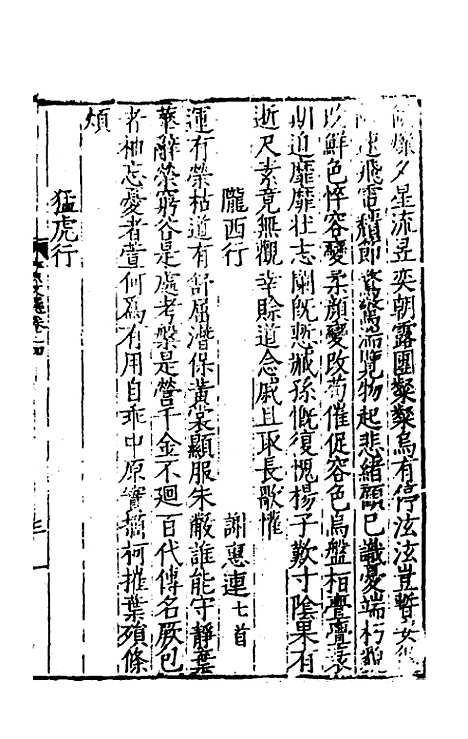 倏爍夕星流昱奕朝露團粲粲烏有停泫泫豈暫安徂
齡速飛電頹節騖驚湍覽物起悲緒顧已識憂端朽貌
改鮮色悴容變柔顏變改苟催促容色烏盤桓亹亹衰
期迫靡靡壯志闌既慙臧孫慨復愧楊子歎寸陰果有
逝尺素竟無觀幸賒道念戚且取長歌懽
隴西行 謝惠連七首
運有榮枯道有舒屈潛保黃裳顯服朱黻誰能守靜棄
華辭榮窮谷是處考槃是營千金不廻百代傳名厥包
者柚忘憂者萱何爲有用自乖中原實摘柯摧葉殞條
煩
猛虎行